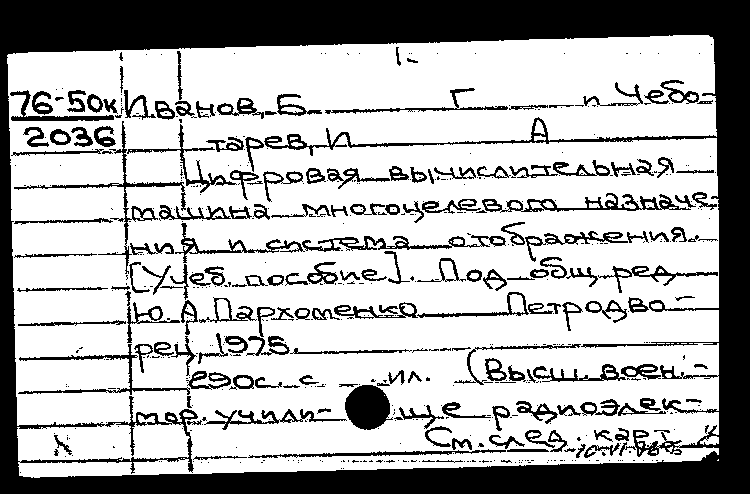 1-
76-50к Иванов, Б. Г и Чебо-
2036 тарев, И А
Цифровая вычислительная
машина многоцелевого назначе-
ния и система отображения.
[Учеб. пособие]. Под общ. ред
Ю. А. Пархоменко Петродво-
рец, 1975.
290с. с ил. (Высш. воен.-
мор. учили- ще радиоэлек-
См. след. карт